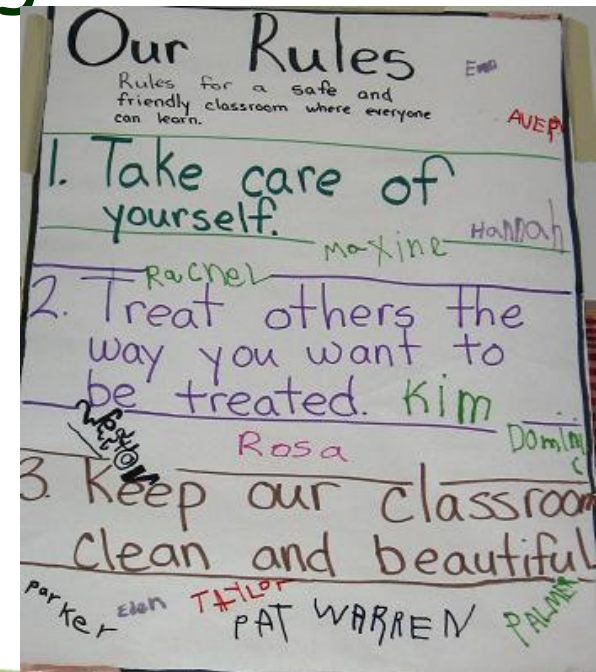 Our Rules
Rules for a safe and
friendly classroom where everyone
can learn.
AVERY
1. Take care of
yourself.
Hannah
Maxine
Rachel
2. Treat others the
way you want to
be treated. Kim
Dominic
Rosa
3. Keep our classroom
clean and beautiful
Parker
TAYLOR
PAT WARREN
PALMER